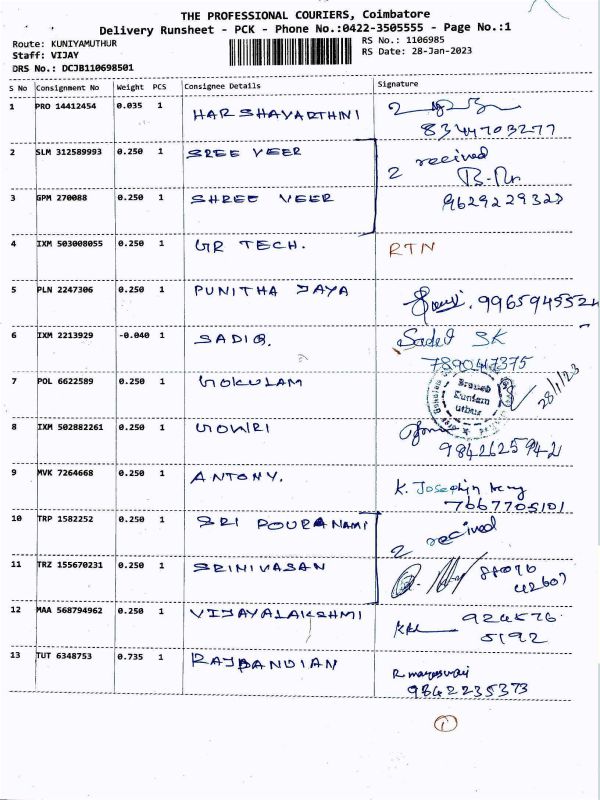 THE PROFESSIONAL COURIERS, Coimbatore
Delivery Runsheet - PCK - Phone No.:0422-3505555 - Page No.:1
Route: KUNIYAMUTHUR
RS No.: 1106985
Staff: VIJAY
RS Date: 28-Jan-2023
DRS No.: DCJB110698501
S No Consignment No Weight PCS Consignee Details Signature
1 PRO 14412454 0.035 1 HARSHAVARTHNI
8344703277
2 SLM 312589993 0.250 1 SREE VEER 2 recived
3 GPM 270088 0.250 1 SHREE VEER 9629229323
4 IXM 503008055 0.250 1 GR TECH. RTN
5 PLN 2247306 0.250 1 PUNITHA JAYA 9965945524
6 IXM 2213929 -0.040 1 SADIQ. Sadel SK
7890417375
7 POL 6622589 0.250 1 GOKULAM 28/1/23
8 IXM 502882261 0.250 1 GOWRI
9842625942
9 MVK 7264668 0.250 1 ANTONY. K. Josephin
7667705101
10 TRP 1582252 0.250 1 SRI POURANAMI 2 recived
11 TRZ 155670231 0.250 1 SRINIVASAN 88076
42607
12 MAA 568794962 0.250 1 VIJAYALAKSHMI 924576
5192
13 TUT 6348753 0.735 1 RAJPANDIAN
9842235373
1